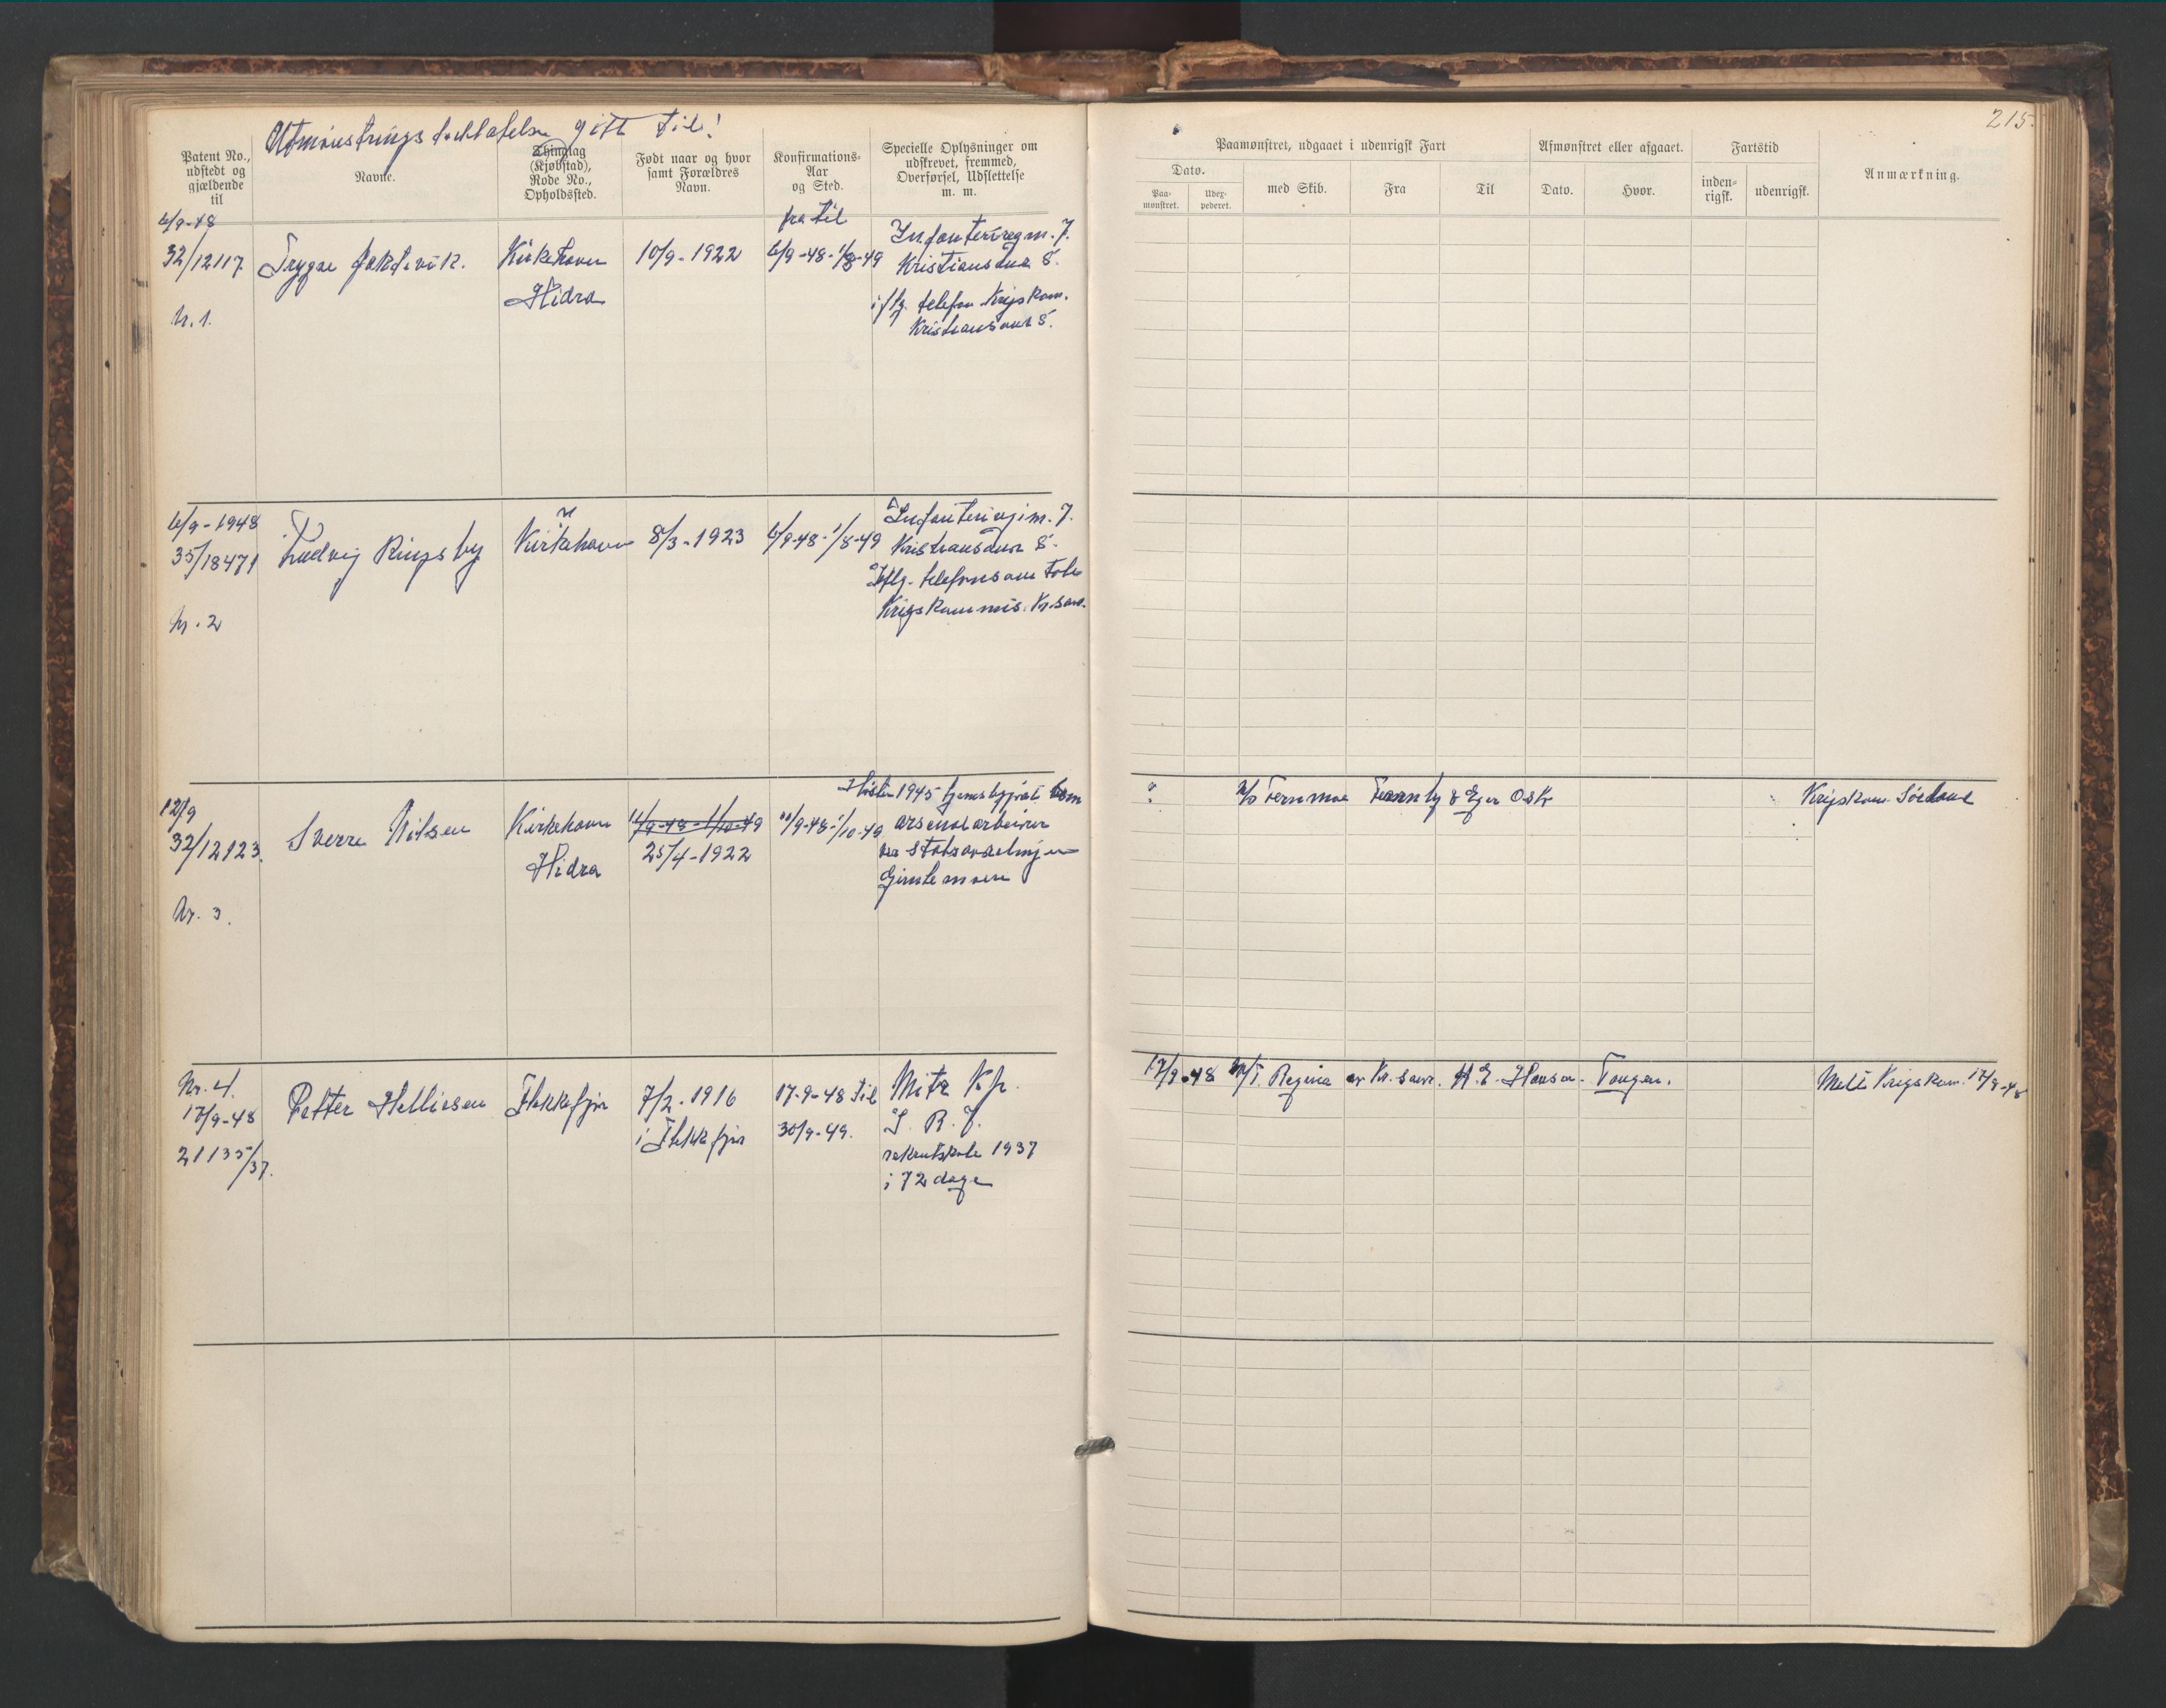 Utmönstringstillatelse gitt til!
215.
Patent No., udstedt og gjældende til
Navne.
Thinglag (Kjøbstad), Rode No., Opholdssted.
Født naar og hvor samt Forældres Navn.
Konfirmations-Aar og Sted.
Specielle Oplysninger om udskrevet, fremmed, Overførsel, Udslettelse m. m.
Paamønstret, udgaaet i udenrigsk Fart
Dato.
Paa-mønstret.
Udex-pederet.
med Skib.
Fra
Til
Afmønstret eller afgaaet.
Dato.
Hvor.
Fartstid
inden-rigsk.
udenrigsk.
Anmærkning.
fra til
6/9-48
32/12117
Nr. 1.
Trygve
Kirkehavn
Hidra
10/9-1922
6/9-48-1/8-49
Infanteriregm. 7.
Kristiansand S.
iflg. telefon Krigskom.
Kristiansand S.
6/9-1948
35/18471
Nr. 2
Ludvig Ringsby
Kirkehavn
8/3-1923
6/9-48-1/8-49
Kristiansand S.
Iflg. telefonsamtale
Krigskommis. Kr.sand.
12/9
32/12123.
Nr. 3.
Sverre Nilsen
Kirkehavn
Hidra
25/4-1922
Høsten 1945 som
arsenalarbeider
ved Stabsavdelingen
Gimlemoen
M/S Fernmoa Fearnley & Eger Oslo
Krigskom. Sørland
Nr. 4.
17/9-48
21135/37.
Petter Hellesen
Flekkefjor
7/2-1916
i Flekkefjor
17-9-48 til
30/9-49.
Mitr. Kp.
I. R. 7.
rekrutskole 1937
i 72 dage
17/9-48 M/T. Regina av Kr.sand. H. E. Hansen-Tangen.
Meldt Krigskom. 17/9-48